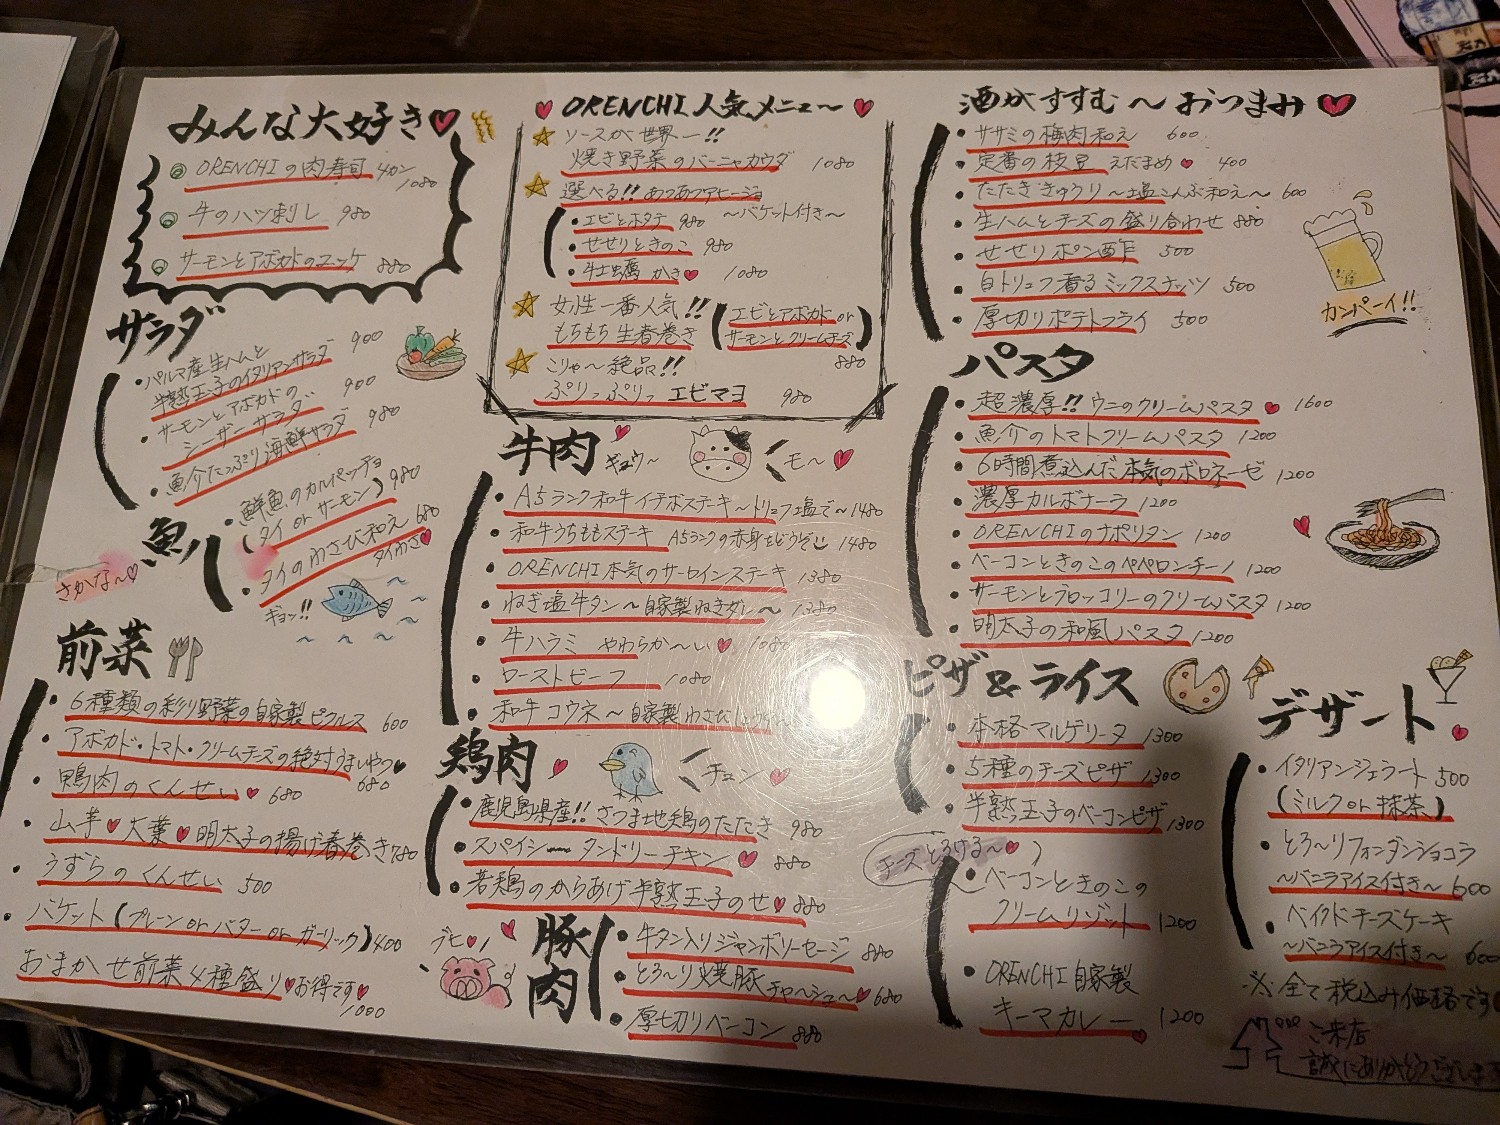 みんな大好き
ORENCHIの肉寿司 4カン
1080
牛のハツ刺し 980
サーモンとアボカドのユッケ 880
サラダ
パルマ産生ハムと
半熟玉子のイタリアンサラダ 900
サーモンとアボカドの
シーザーサラダ 900
魚介たっぷり海鮮サラダ 980
魚
さかな〜
鮮魚のカルパッチョ
(タイ or サーモン) 980
タイのわさび和え 680
タイわさ
ギョッ!!
前菜
6種類の彩り野菜の自家製ピクルス 600
アボカド・トマト・クリームチーズの絶対うまいやつ
680
鴨肉のくんせい 680
山芋 大葉 明太子の揚げ春巻き 780
うずらのくんせい 500
バケット(プレーン or バター or ガーリック) 400
おまかせ前菜4種盛り お得です
1000
ORENCHI 人気メニュ〜
ソースが世界一!!
焼き野菜のバーニャカウダ 1080
選べる!! あつあつアヒージョ
〜バケット付き〜
エビとホタテ 980
せせりときのこ 980
牡蠣 かき 1080
女性一番人気!!
もちもち生春巻き
(エビとアボカド or
サーモンとクリームチーズ)
880
こりゃ〜絶品!!
ぷりっぷりっ エビマヨ 980
牛肉
ギュウ〜
モ〜
A5ランク和牛イチボステーキ〜トリュフ塩で〜 1480
和牛うちももステーキ A5ランクの赤身をどうぞ 1480
ORENCHI本気のサーロインステーキ 1380
ねぎ塩牛タン〜自家製ねぎダレ〜 1380
牛ハラミ やわらか〜い 1080
ローストビーフ 1080
和牛コウネ〜自家製わさび
鶏肉
チュン
鹿児島県産!! さつま地鶏のたたき 980
スパイシータンドリーチキン 880
若鶏のからあげ半熟玉子のせ 880
豚肉
ブヒ
牛タン入りジャンボソーセージ 880
とろ〜り焼豚 チャ〜シュ〜 680
厚切りベーコン 880
酒がすすむ〜おつまみ
ササミの梅肉和え 600
定番の枝豆 えだまめ 400
たたききゅうり〜塩こんぶ和え〜 600
生ハムとチーズの盛り合わせ 880
せせりポン酢 500
白トリュフ香るミックスナッツ 500
厚切りポテトフライ 500
カンパーイ!!
パスタ
超濃厚!! ウニのクリームパスタ 1600
魚介のトマトクリームパスタ 1200
6時間煮込んだ本気のボロネーゼ 1200
濃厚カルボナーラ 1200
ORENCHIのナポリタン 1200
ベーコンときのこのペペロンチーノ 1200
サーモンとブロッコリーのクリームパスタ 1200
明太子の和風パスタ 1200
ピザ&ライス
本格マルゲリータ 1300
5種のチーズピザ 1300
半熟玉子のベーコンピザ 1300
チーズとろける〜
ベーコンときのこの
クリームリゾット 1200
ORENCHI自家製
キーマカレー 1200
デザート
イタリアンジェラート 500
(ミルク or 抹茶)
とろ〜りフォンダンショコラ
〜バニラアイス付き〜 600
ベイクドチーズケーキ
〜バニラアイス付き〜 600
※全て税込み価格です
ご来店
誠にありがとうございます